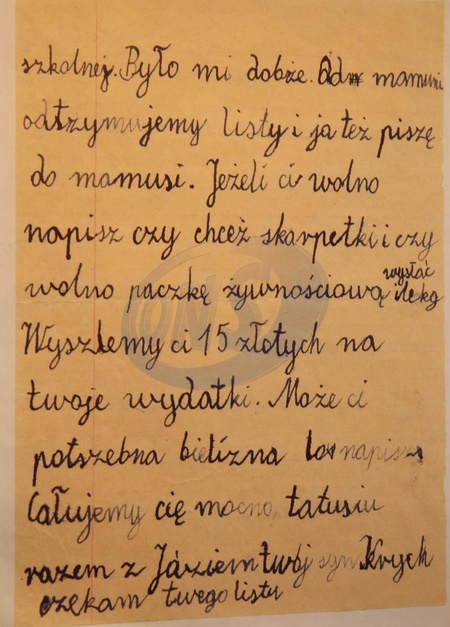 szkolnej. Było mi dobże. Od mamusi
odtzymujemy listy i ja też piszę
do mamusi. Jeżeli ci wolno
napisz czy chcéż skarpetki i czy
wysłać
wolno paczkę żywnościową ile kg
Wyszlemy ci 15 złotych na
twoje wydatki. Może ci
potszebna bielizna to napisz
Całujemy cię mocno tatusiu
razem z Józiem twój syn Krych
czekam twego listu
ONS